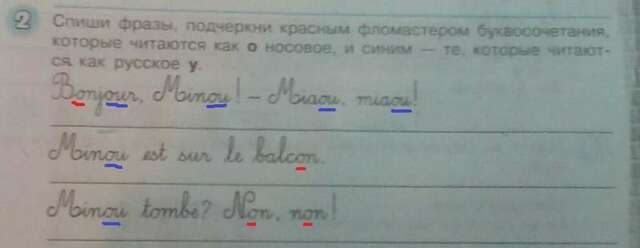 2 Спиши фразы, подчеркни красным фломастером буквосочетания,
которые читаются как о носовое, и синим — те, которые читают-
ся как русское у.
Bonjour, Minou! – Miaou, miaou!
Minou est sur le balcon.
Minou tombe? Non, non!